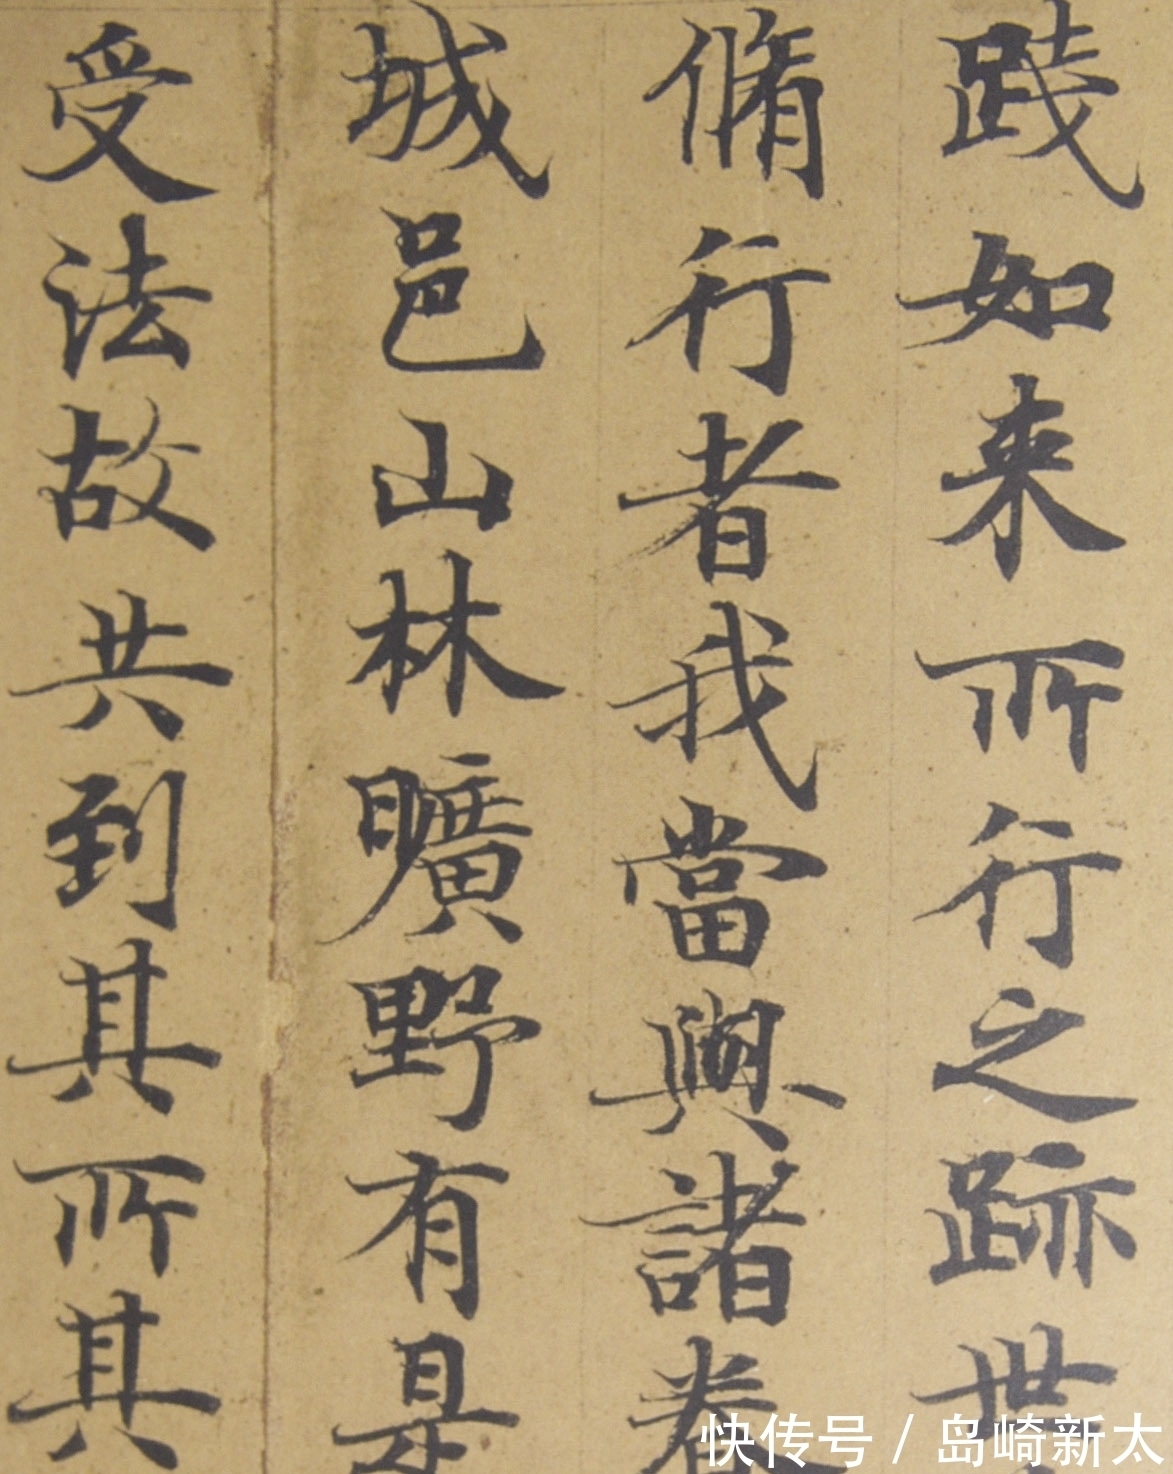 践如来所行之跡世
脩行者我當與諸眷
城邑山林曠野有是
受法故共到其所其
快传号 / 岛崎新太